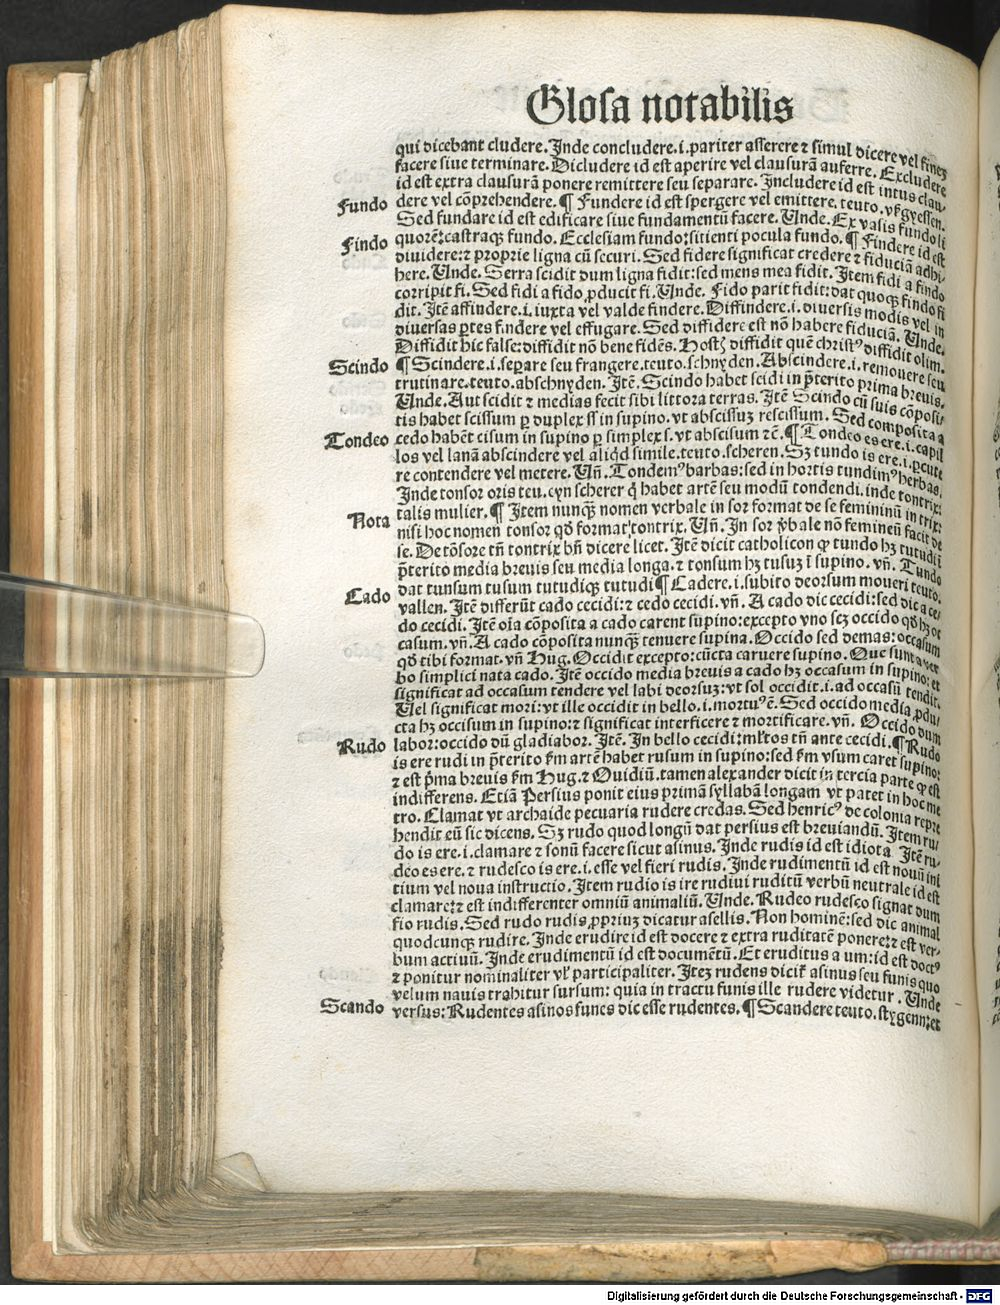 Glosa notabilis
qui dicebant cludere. Inde concludere .i. pariter asserere ⁊ simul dicere vel finez
facere siue terminare. Dicludere id est aperire vel clausurā auferre. Excludere
id est extra clausurā ponere remittere seu separare. Includere id est intus clau-
Fundo dere vel cōprehendere. ¶ Fundere id est spergere vel emittere. teuto. vßgyessen.
Sed fundare id est edificare siue fundamentū facere. Unde. Ex vasis fundo li
Findo quorē: castraqꝫ fundo. Ecclesiam fundo: sitienti pocula fundo. ¶ Findere id est
diuidere: ⁊ proprie ligna cū securi. Sed fidere significat credere ⁊ fiduciā adhi
here. Unde. Serra scidit dum ligna fidit: sed mens mea fidit. Item fidi a findo
corripit fi. Sed fidi a fido ꝓducit fi. Unde. Fido parit fidit: dat quoqꝫ findo fi
dit. Itē affindere .i. iuxta vel valde findere. Diffindere .i. diuersis modis vel in
diuersas ꝑtes findere vel effugare. Sed diffidere est nō habere fiduciā. Unde.
Diffidit hic false: diffidit nō bene fidēs. Hostꝫ diffidit quē christꝰ diffidit olim.
Scindo ¶ Scindere .i. seꝑare seu frangere. teuto. schnyden. Abscindere .i. remouere seu
trutinare. teuto. abschnyden. Itē. Scindo habet scidi in p̄terito prima breuis.
Unde. Aut scidit ⁊ medias fecit sibi littora terras. Itē Scindo cū suis cōposi-
tis habet scissum ꝑ duplex ss in supino. vt abscissuꝫ rescissum. Sed composita a
Tondeo cedo habēt cisum in supino ꝑ simplex s. vt abscisum ⁊c̄. ¶ Tondeo es ere .i. capil
los vel lanā abscindere vel aliqd simile. teuto. scheren. Sꝫ tundo is ere .i. ꝑcute
re contendere vel metere. Vn̄. Tondemꝰ barbas: sed in hortis tundimꝰ herbas.
Inde tonsor oris teu. eyn scherer q̇ habet artē seu modū tondendi. inde tontrix
Nota talis mulier. ¶ Item nunqꝫ nomen verbale in sor format de se femininū in trix:
nisi hoc nomen tonsor qd̄ format tontrix. Vn̄. In sor v̄bale nō femineū facit de
se. De tōsore tn̄ tontrix bn̄ dicere licet. Itē dicit catholicon ꝙ tundo hꝫ tutudi ī
p̄terito media breuis seu media longa. ⁊ tonsum hꝫ tusuꝫ ī supino. vn̄. Tundo
dat tunsum tusum tutudiqꝫ tutudi ¶ Cadere .i. subito deorsum moueri teuto.
Cado vallen. Itē differūt cado cecidi: ⁊ cedo cecidi. vn̄. A cado dic cecidi: sed dic a ce-
do cecidi. Itē oīa cōposita a cado carent supino: excepto vno sez occido qd̄ hꝫ oc
casum. vn̄. A cado cōposita nunqꝫ tenuere supina. Occido sed demas: occasum
qd̄ tibi format. vn̄ Hug. Occidit excepto: cūcta caruere supino. Que sunt a ver
bo simplici nata cado. Itē occido media breuis a cado hꝫ occasum in supino: et
significat ad occasum tendere vel labi deorsuꝫ: vt sol occidit .i. ad occasū tendit.
Vel significat mori: vt ille occidit in bello .i. mortuꝰ ē. Sed occido media ꝓdu
cta hꝫ occisum in supino: ⁊ significat interficere ⁊ mortificare. vn̄. Occido dum
Rudo labor: occido dū gladiabor. Itē. In bello cecidi: ml̄tos tn̄ ante cecidi. ¶ Rudo
is ere rudi in p̄terito ẜm artē habet rusum in supino: sed ẜm vsum caret supino:
⁊ est p̄ma breuis ẜm Hug. ⁊ Ouidiū. tamen alexander dicit in tercia parte ꝙ est
indifferens. Etiā Persius ponit eius primā syllabā longam vt patet in hoc me
tro. Clamat vt archaide pecuaria rudere credas. Sed henricꝰ de colonia repre
hendit eū sic dicens. Sꝫ rudo quod longū dat persius est breuiandū. Item ru-
do is ere .i. clamare ⁊ sonū facere sicut asinus. Inde rudis id est idiota. Itē ru-
deo es ere. ⁊ rudesco is ere .i. esse vel fieri rudis. Inde rudimentū id est nouū ini
tium vel noua instructio. Item rudio is ire rudiui ruditū verbū neutrale id est
clamare: ⁊ est indifferenter omniū animaliū. Unde. Rudeo rudesco signat dum
fio rudis. Sed rudo rudis ꝓpriuꝫ dicatur asellis. Non hominē: sed dic animal
quodcunqꝫ rudire. Inde erudire id est docere ⁊ extra ruditatē ponere: ⁊ est ver-
bum actiuū. Inde erudimentū id est documētū. Et eruditus a um: id est doctꝰ
⁊ ponitur nominaliter vl̓ participaliter. Iteꝫ rudens dicit̓ asinus seu funis quo
velum nauis trahitur sursum: quia in tractu funis ille rudere videtur. Unde
Scando versus: Rudentes asinos funes dic esse rudentes. ¶ Scandere teuto. stygenn: et
Digitalisierung gefördert durch die Deutsche Forschungsgemeinschaft - DFG